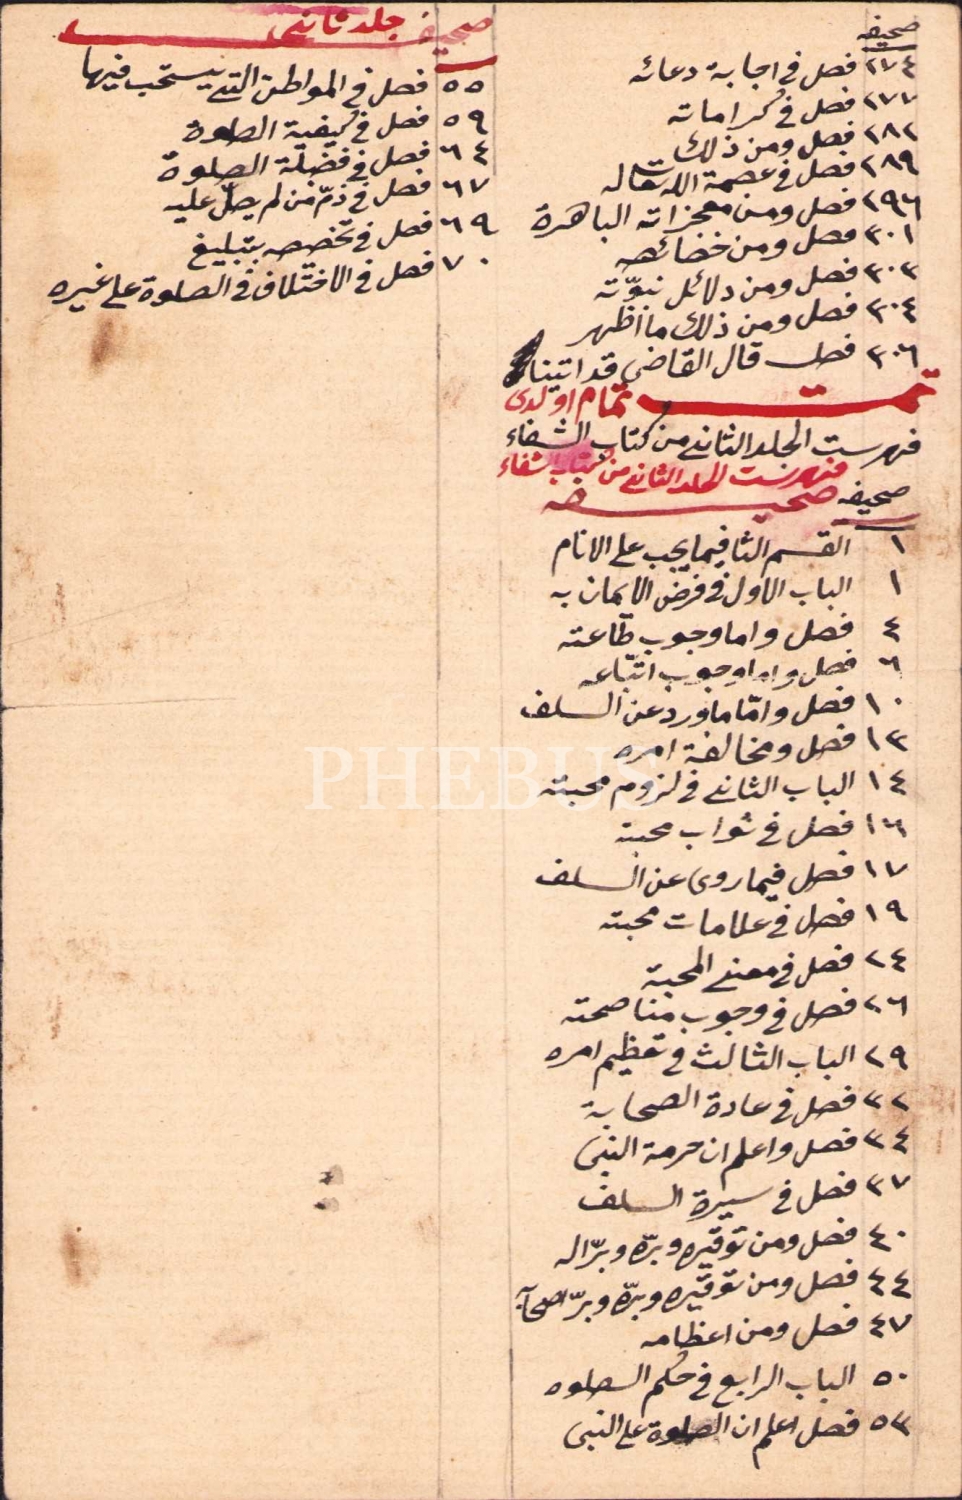 صحيفه
٢٧٤ فصل في اجابة دعائه
٢٧٧ فصل في كراماته
٢٨٢ فصل ومن ذلك
٢٨٩ فصل في عصمة الله تعالى له
٢٩٦ فصل ومن معجزاته الباهرة
٣٠١ فصل ومن خصائصه
٣٠٣ فصل ومن دلائل نبوّته
٣٠٤ فصل ومن ذلك ما اظهر
٣٠٦ فصل قال القاضي قد اتينا
تمت تمام اولدى
فهرست الجلد الثاني من كتاب الشفاء
فهرست الجلد الثاني من كتاب الشفاء
صحيفه صحيفه
١ القسم الثا فيما يجب على الانام
١ الباب الاول في فرض الايمان به
٤ فصل واما وجوب طاعته
٦ فصل واما وجوب اتباعه
١٠ فصل وامّا ماورد عن السلف
١٣ فصل ومخالفة امره
١٤ الباب الثاني في لزوم محبته
١٦ فصل في ثواب محبته
١٧ فصل فيما روى عن السلف
١٩ فصل في علامات محبته
٢٤ فصل في معنى المحبة
٢٦ فصل في وجوب مناصحته
٢٩ الباب الثالث في تعظيم امره
٣٢ فصل في عادة الصحابة
٣٤ فصل واعلم ان حرمة النبى
٣٧ فصل في سيرة السلف
٤٠ فصل ومن توقيره وبرّه وبرّ اله
٤٤ فصل ومن توقيره وبرّه وبرّ اصحابه
٤٧ فصل ومن اعظامه
٥٠ الباب الرابع في حكم الصلوه
٥٣ فصل اعلم ان الصلوة على النبى
صحيفه جلد ثانى
٥٥ فصل في المواطن التى يستحب فيها
٥٩ فصل في كيفية الصلوة
٦٤ فصل في فضيلة الصلوة
٦٧ فصل في ذمّ من لم يصلّ عليه
٦٩ فصل في تخصصه بتبليغ
٧٠ فصل في الاختلاف في الصلوة على غيره
PHEBUS